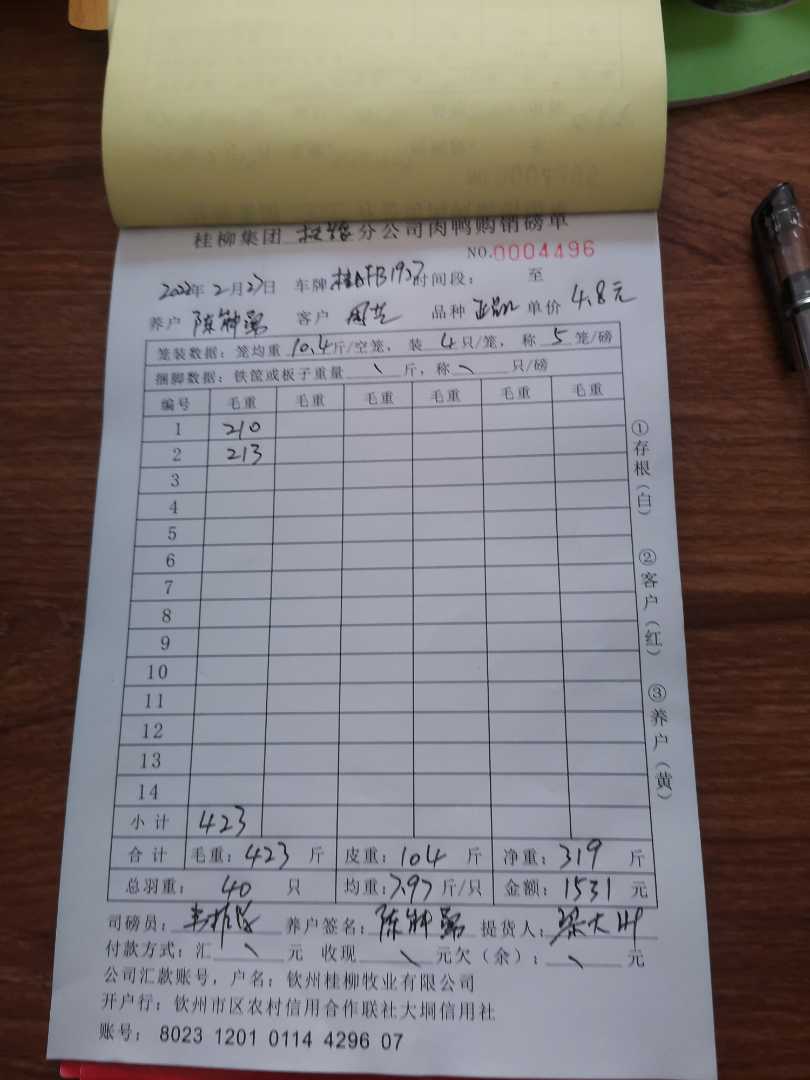 桂柳集团 分公司肉鸭购销磅单
NO.0004496
2022年2月27日 车牌 桂 FB1927 时间段: 至
养户 陈 客户 周 品种 单价 4.8元
笼装数据: 笼均重 10.4 斤/空笼, 装 4 只/笼, 称 5 笼/磅
捆脚数据: 铁筐或板子重量 \ 斤, 称 \ 只/磅
编号 毛重 毛重 毛重 毛重 毛重 毛重
1 210
2 213
3
4
5
6
7
8
9
10
11
12
13
14
小计 423
合计 毛重: 423 斤 皮重: 104 斤 净重: 319 斤
总羽重: 40 只 均重: 7.97 斤/只 金额: 1531 元
司磅员: 养户签名: 陈 提货人: 梁大
付款方式: 汇 \ 元 收现 \ 元欠(余): \ 元
公司汇款账号, 户名: 钦州桂柳牧业有限公司
开户行: 钦州市区农村信用合作联社大垌信用社
账号: 8023 1201 0114 4296 07
①存根(白) ②客户(红) ③养户(黄)